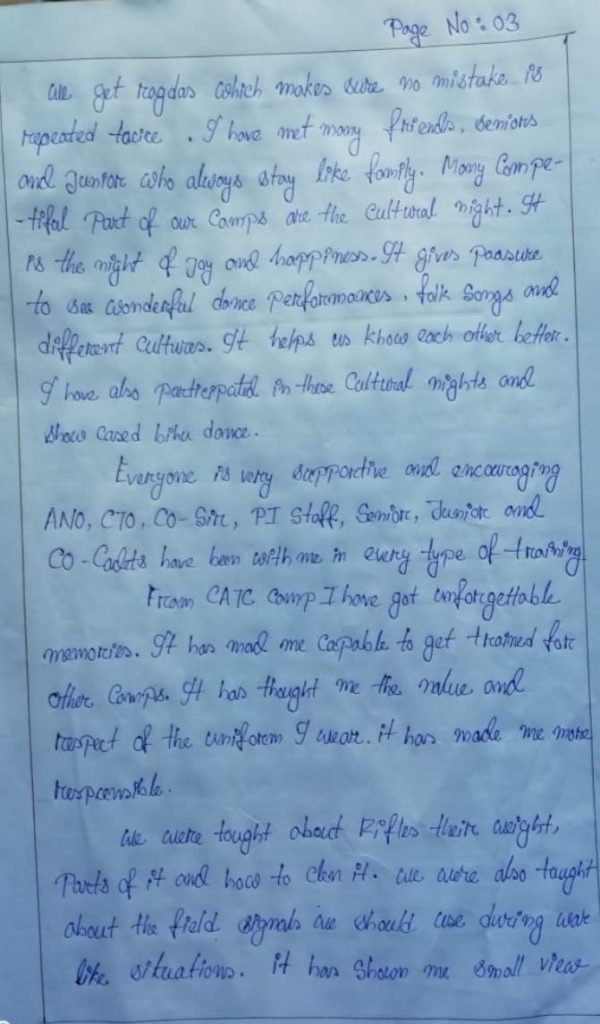 Page No: 03
we get ragdas which makes sure no mistake is
repeated twice. I have met many friends, seniors
and Junior who always stay like family. Many Compe-
-tiful Part of our Camps are the Cultural night. It
is the night of Joy and happiness. It gives Peasure
to see wonderful dance Performances, folk Songs and
different Cultures. It helps us know each other better.
I have also participated in these Cultural nights and
Show Cased bihu dance.
Everyone is very supportive and encouraging
ANO, CTO, CO-Sir, PI Staff, Senior, Junior and
CO-Cadets have been with me in every type of training
From CATC Camp I have got unforgettable
memories. It has mad me Capable to get trained for
other Camps. It has thought me the value and
respect of the uniform I wear. it has made me more
responsible.
We were tought about Rifles their weight,
Parts of it and how to clen it. we were also taught
about the field signals we should use during war
like situations. it has Shown me small view